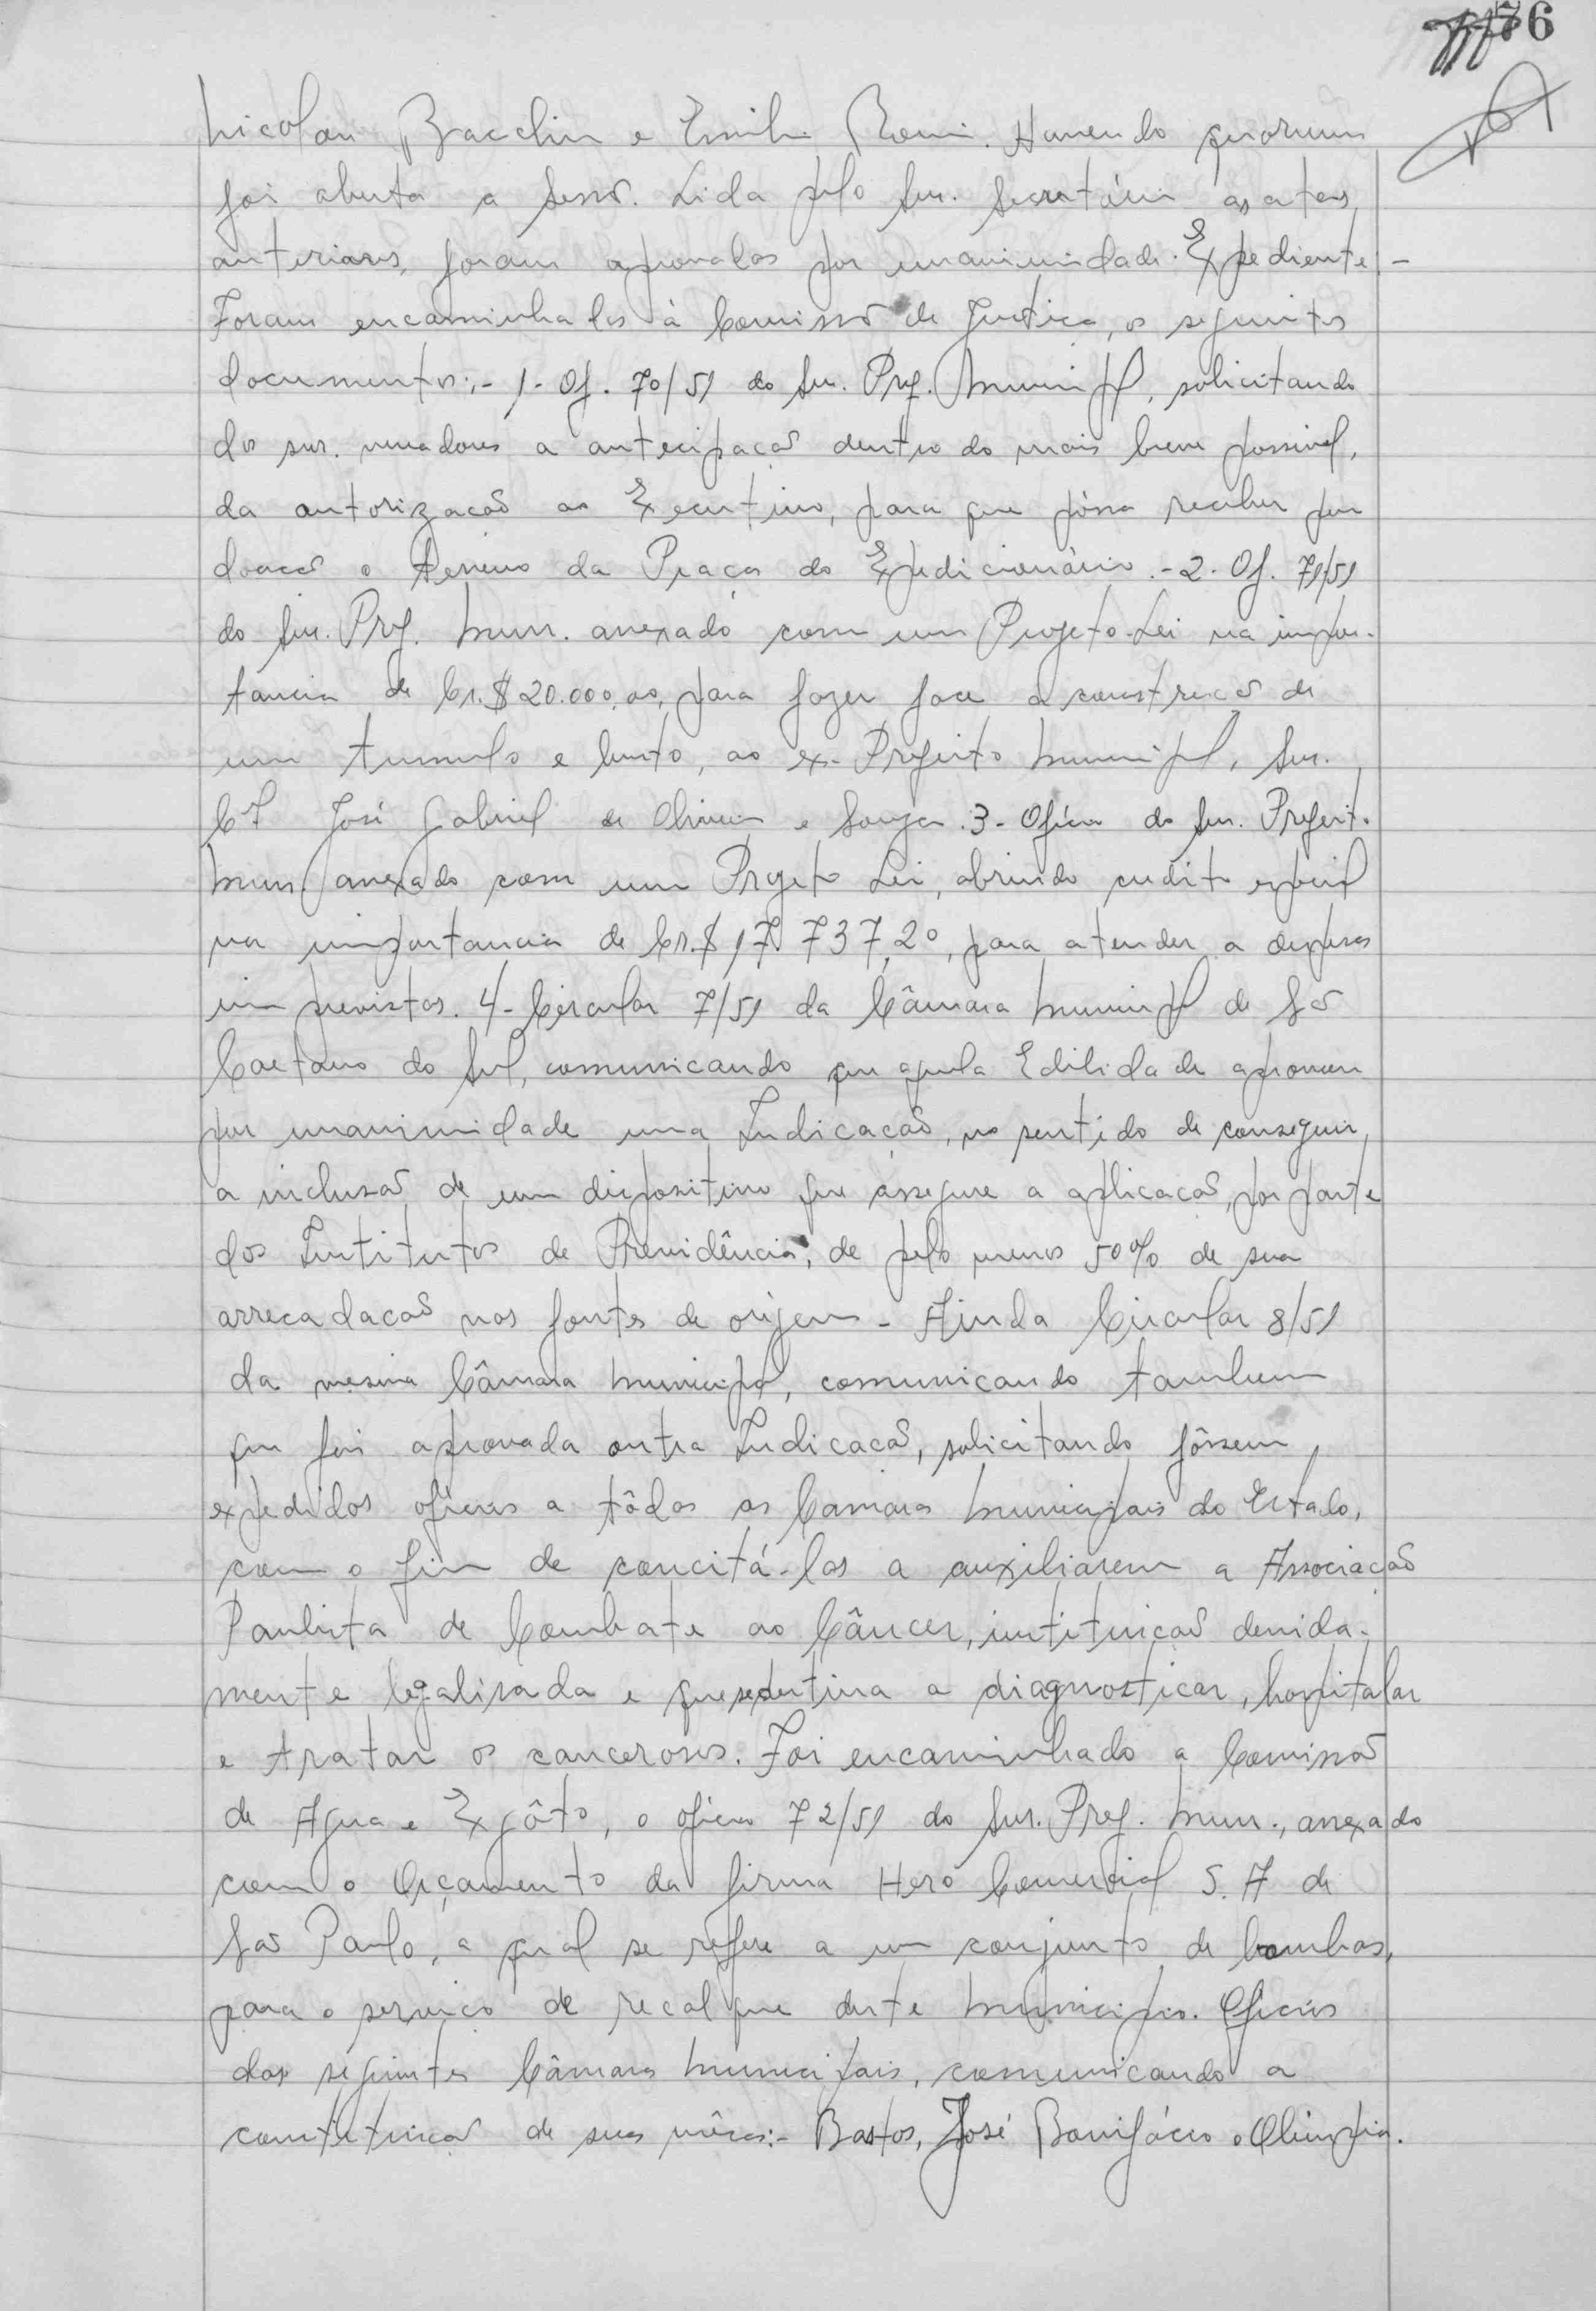 76
Nicolau Bacchin e Emilio Romi. Havendo quorum
foi aberta a sessão. Lida pelo Snr. Secretário as atas
anteriores, foram aprovadas por unanimidade. Expediente -
Foram encaminhados à Comissão de Justiça, os seguintes
documentos:- 1- Of. 70/51 do Snr. Pref. Municipal, solicitando
dos snr. vereadores a antecipação dentro do mais breve possivel,
da autorização ao Executivo, para que póssa receber por
doação o terreno da Praça do Expedicionário.- 2. Of. 71/51
do Snr. Pref. Mun. anexado com um Projeto-Lei na impor-
tancia de Cr.$ 20.000,00, para fazer face a construção de
um tumulo e busto, ao ex-Prefeito Municipal, Snr.
Cel José Gabriel de Oliveira e Souza. 3- Ofício do Snr. Prefeito
Mun. anexado com um Projeto Lei, abrindo credito especial
na importancia de Cr.$ 17.737,20, para atender a despesas
imprevistas. 4- Circular 7/51 da Câmara Municipal de São
Caetano do Sul, comunicando que aquela Edilidade aprovou
por unanimidade uma Indicação, no sentido de conseguir
a inclusão de um dispositivo que assegure a aplicação, por parte
dos Institutos de Previdência, de pelo menos 50% de sua
arrecadação nas fontes de origem - Ainda Circular 8/51
da mesma Câmara Municipal, comunicando tambem
que foi aprovada outra Indicação, solicitando fôssem
expedidos oficios a tôdas as Camaras Municipais do Estado,
com o fim de concitá-las a auxiliarem a Associação
Paulista de Combate ao Câncer, instituição devida-
mente legalisada e que se destina a diagnosticar, hospitalar
e tratar os cancerosos. Foi encaminhado a Comissão
de Agua e Exgôto, o oficio 72/51 do Snr. Pref. Mun., anexado
com o Orçamento da firma Hero Comercial S. A de
São Paulo, a qual se refere a um conjunto de bombas,
para o serviço de recalque deste Municipio. Oficios
das seguintes Câmaras Municipais, comunicando a
constituição de suas mêsas:- Bastos, José Bonifácio e Olimpia.